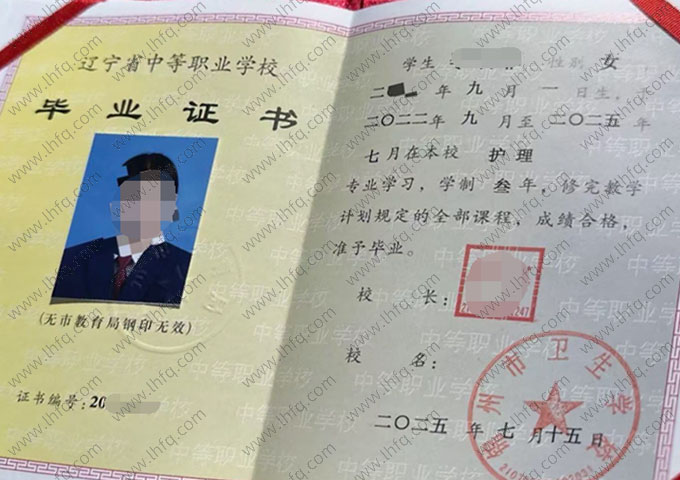 辽宁省中等职业学校
毕业证书
(无市教育局钢印无效)
证书编号:20
学生 性别 女
二 年 九 月 一 日生,于
二〇二二年 九 月至 二〇二五 年
七 月在本校 护理
专业学习,学制 叁 年,修完教学
计划规定的全部课程,成绩合格,
准予毕业。
校 长:
校 名:
州市卫生学校
二〇二五 年 七 月 十五 日
www.lhfq.com
中等职业学校